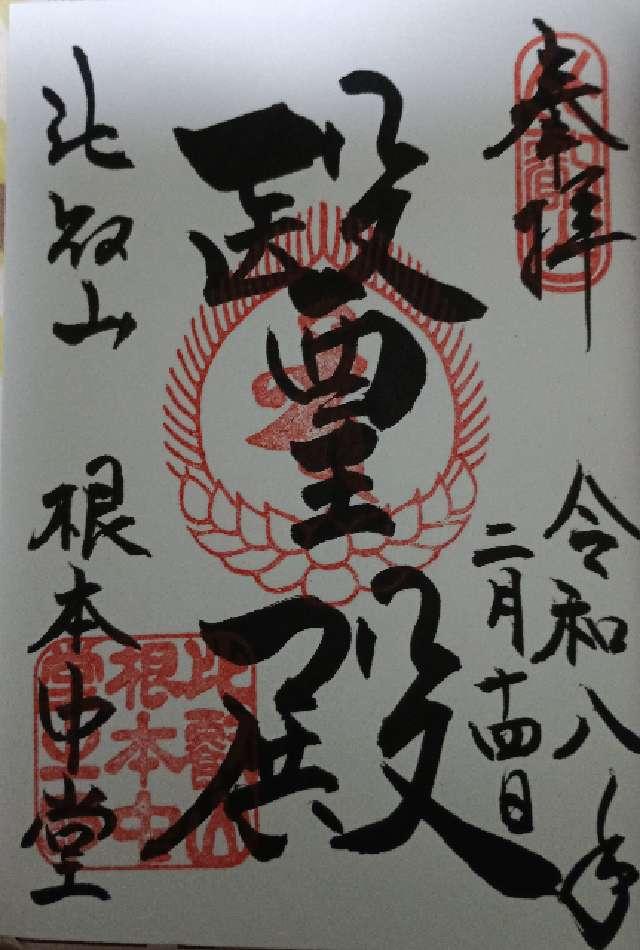 奉拝
令和八年
二月十四日
醫王殿
比叡山
根本中堂
比叡山
根本中
堂